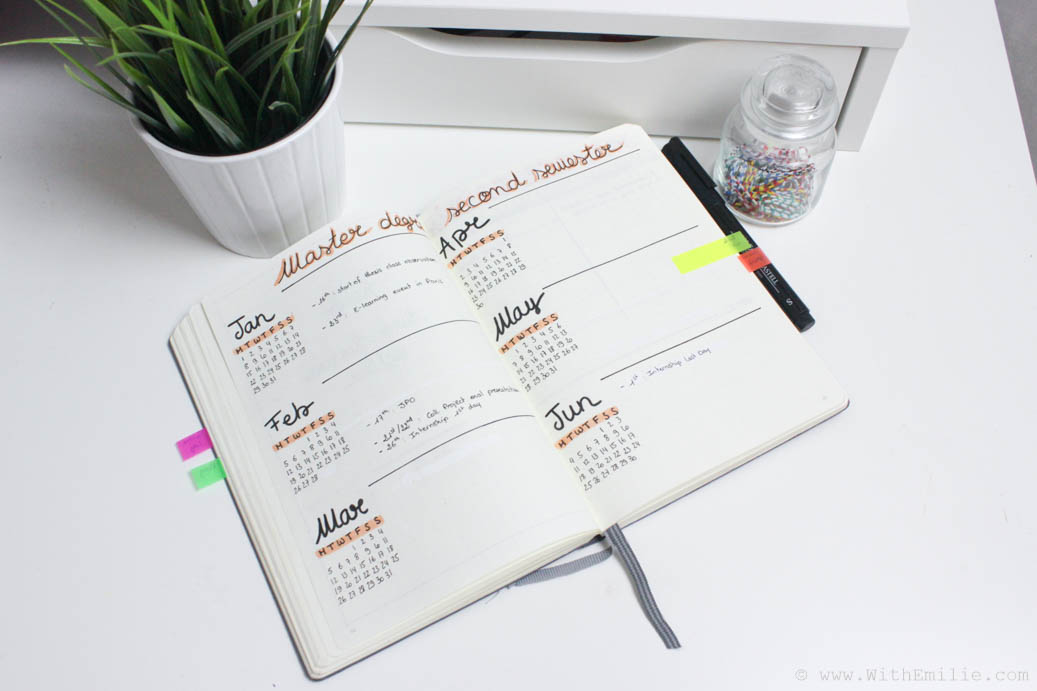 Master degr
second semester
Jan
MTWTFSS
1 2 3 4 5 6 7
8 9 10 11 12 13 14
15 16 17 18 19 20 21
22 23 24 25 26 27 28
29 30 31
- 16th : start of thesis class observation
- 23rd : E-learning event in Paris
Feb
MTWTFSS
1 2 3 4
5 6 7 8 9 10 11
12 13 14 15 16 17 18
19 20 21 22 23 24 25
26 27 28
- 17th : JPO
- 21st/22nd : Coll. Project oral presentation
- 26th : Internship 1st day
Mar
MTWTFSS
1 2 3 4
5 6 7 8 9 10 11
12 13 14 15 16 17 18
19 20 21 22 23 24 25
26 27 28 29 30 31
Apr
MTWTFSS
1
2 3 4 5 6 7 8
9 10 11 12 13 14 15
16 17 18 19 20 21 22
23 24 25 26 27 28 29
30
May
MTWTFSS
1 2 3 4 5 6
7 8 9 10 11 12 13
14 15 16 17 18 19 20
21 22 23 24 25 26 27
28 29 30 31
Jun
MTWTFSS
1 2 3
4 5 6 7 8 9 10
11 12 13 14 15 16 17
18 19 20 21 22 23 24
25 26 27 28 29 30
- 1st : Internship Last Day
S
© www.WithEmilie.com